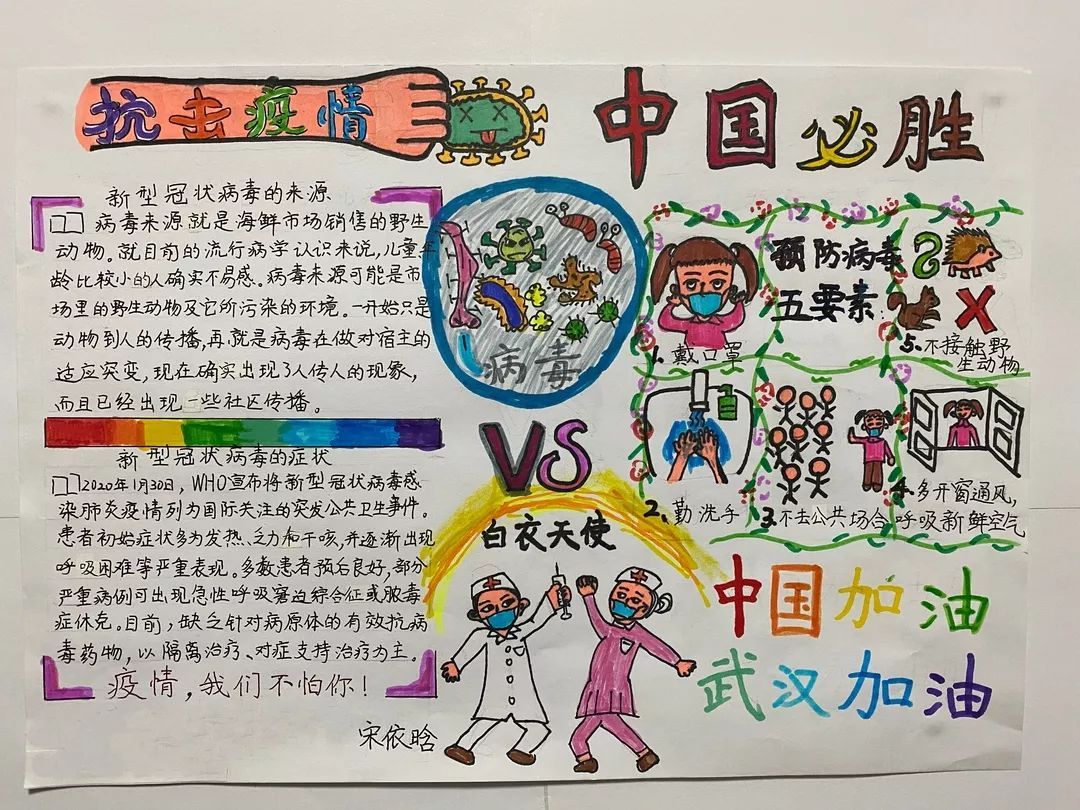 抗击疫情
中国必胜
新型冠状病毒的来源
病毒来源就是海鲜市场销售的野生
动物。就目前的流行病学认识来说,儿童年
龄比较小的人确实不易感。病毒来源可能是市
场里的野生动物及它所污染的环境。一开始只是
动物到人的传播,再就是病毒在做对宿主的
适应突变,现在确实出现了人传人的现象,
而且已经出现一些社区传播。
新型冠状病毒的症状
2020年1月30日,WHO宣布将新型冠状病毒感
染肺炎疫情列为国际关注的突发公共卫生事件。
患者初始症状多为发热、乏力和干咳,并逐渐出现
呼吸困难等严重表现。多数患者预后良好,部分
严重病例可出现急性呼吸窘迫综合征或脓毒
症休克。目前,缺乏针对病原体的有效抗病
毒药物,以隔离治疗、对症支持治疗为主。
疫情,我们不怕你!
宋依晗
病毒
VS
白衣天使
预防病毒
五要素
1.戴口罩
2.勤洗手
3.不去公共场合
4.多开窗通风,
呼吸新鲜空气
5.不接触野
生动物
中国加油
武汉加油